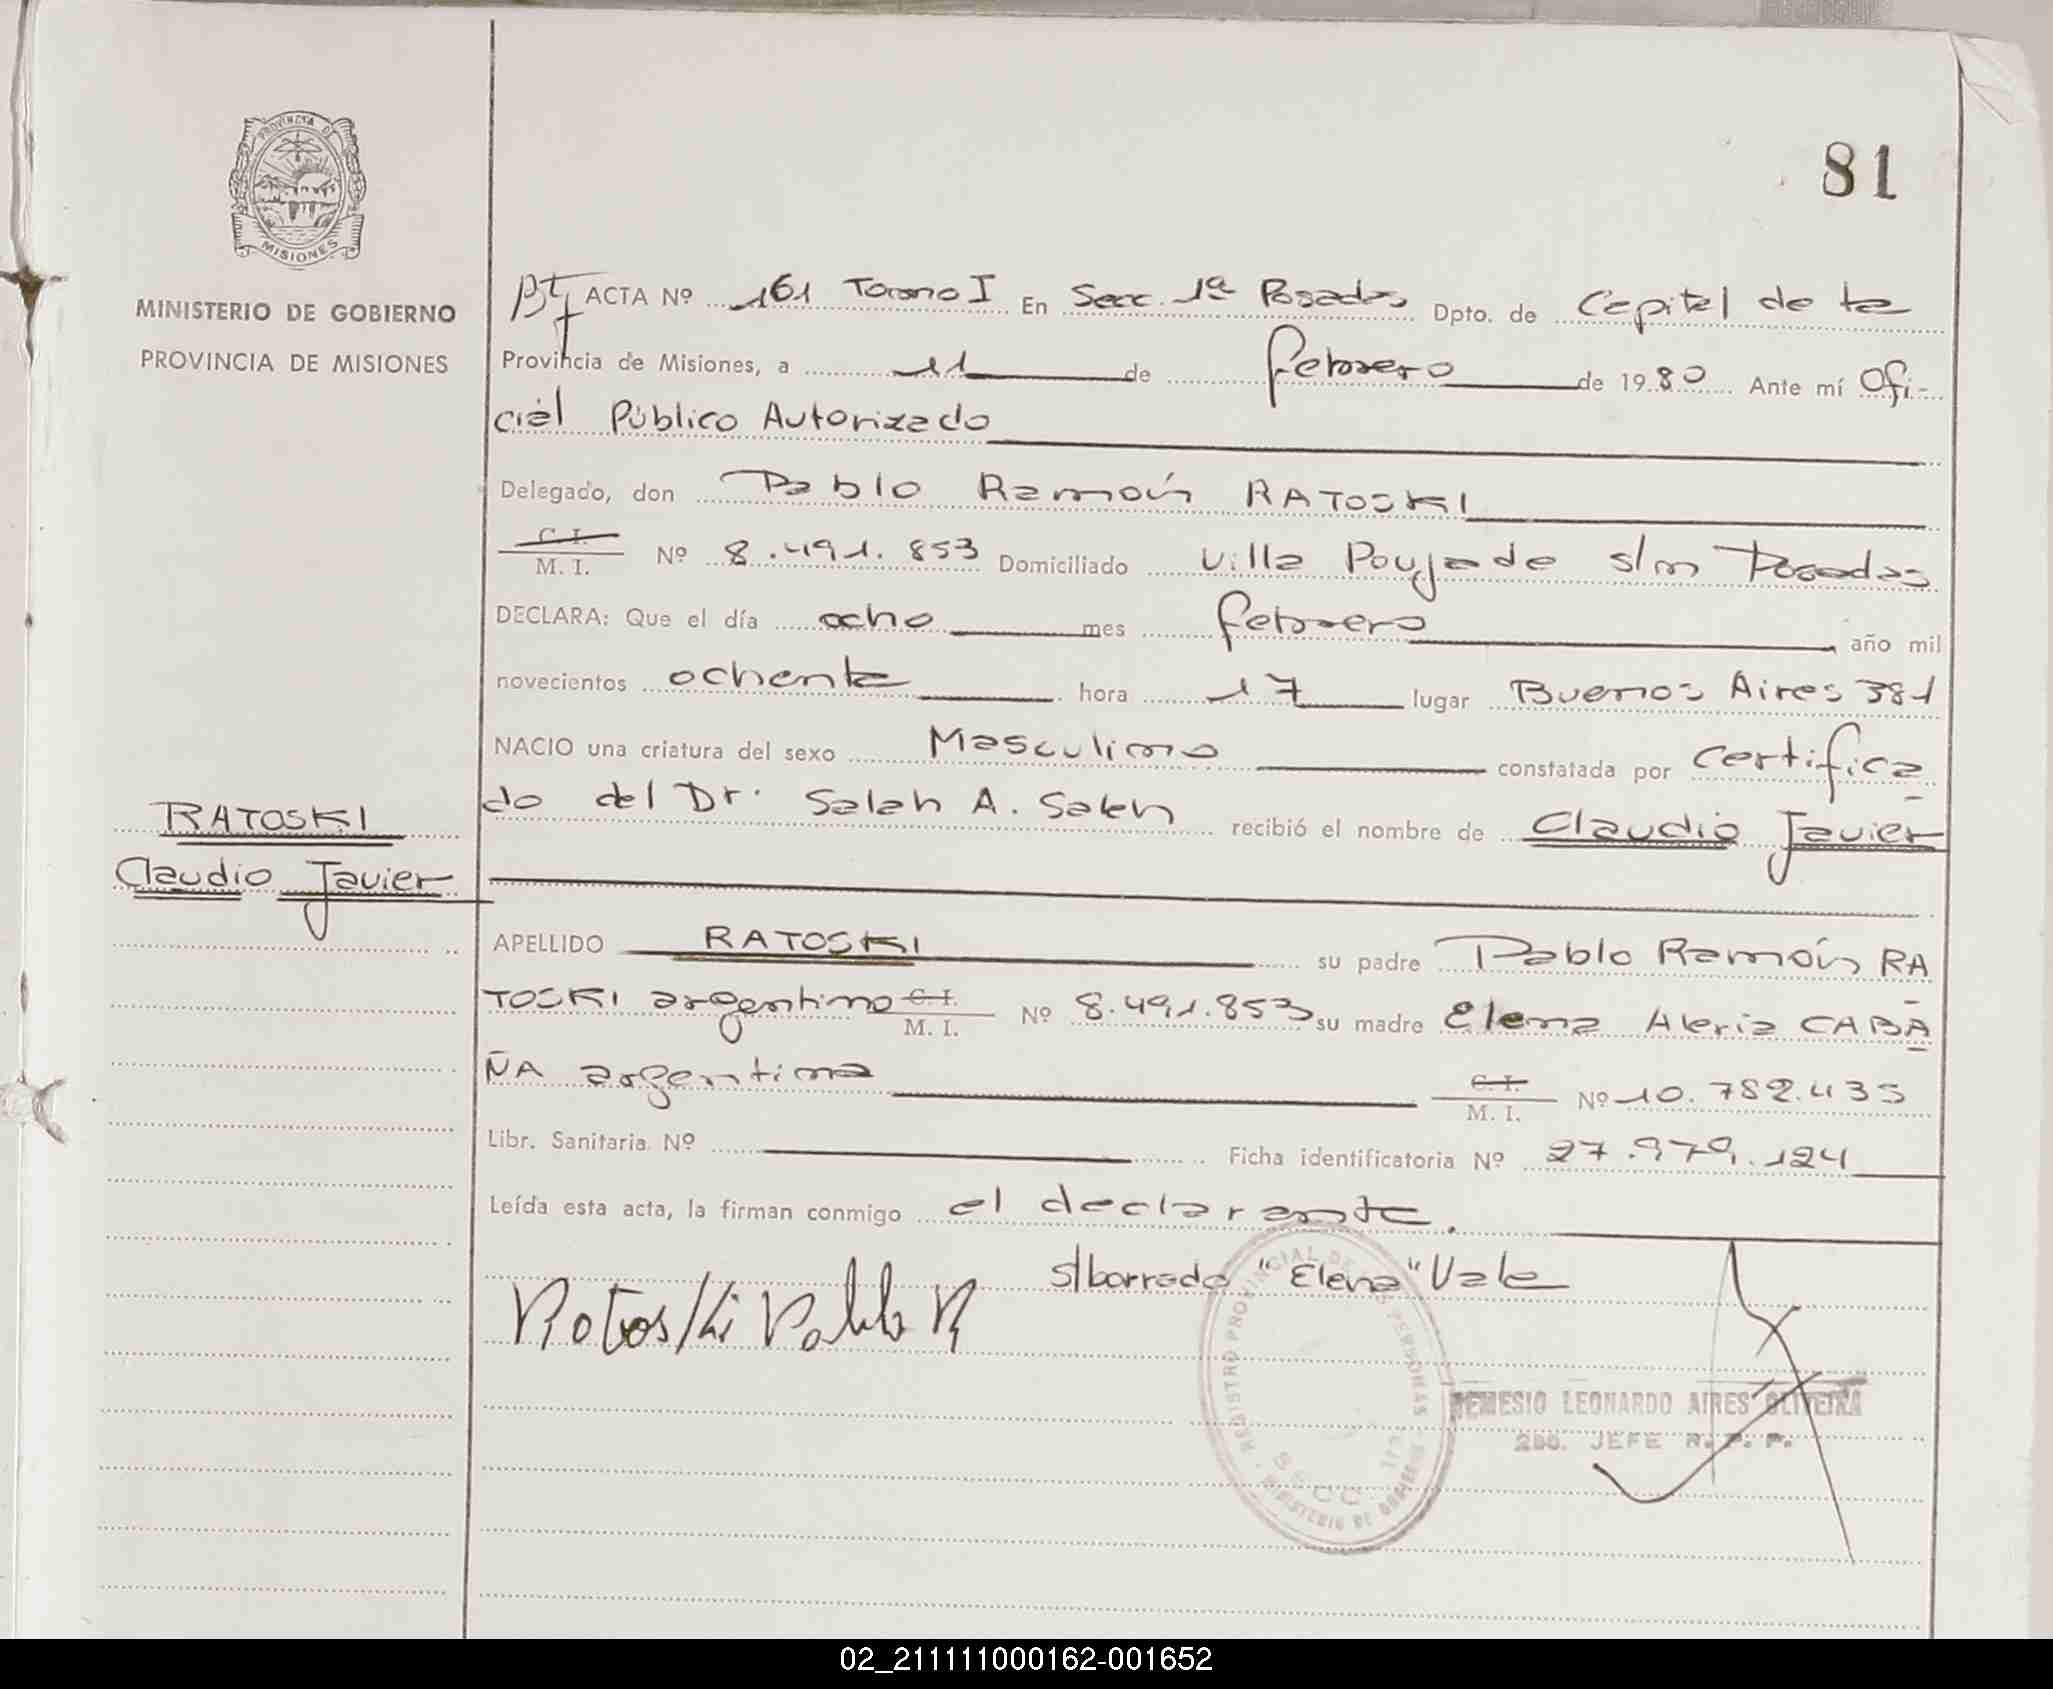 PROVINCIA DE
MISIONES
MINISTERIO DE GOBIERNO
PROVINCIA DE MISIONES
81
ACTA Nº 161 Tomo I En Secc. 1ª Posadas Dpto. de Capital de la
Provincia de Misiones, a 11 de febrero de 1980 Ante mí Ofi-
cial Público Autorizado
Delegado, don Pablo Ramón RATOSKI
C. I.
M. I. Nº 8.491.853 Domiciliado Villa Poujade s/n Posadas
DECLARA: Que el día ocho mes febrero año mil
novecientos ochenta hora 17 lugar Buenos Aires 381
NACIO una criatura del sexo Masculino constatada por certifica
do del Dr. Saleh A. Saleh recibió el nombre de Claudio Javier
RATOSKI
Claudio Javier
APELLIDO RATOSKI su padre Pablo Ramón RA
TOSKI argentino C. I. M. I. Nº 8.491.853 su madre Elena CABA
ÑA argentina C. I. M. I. Nº 10.782.435
Libr. Sanitaria Nº Ficha identificatoria Nº 27.979.124
Leída esta acta, la firman conmigo el declarante.
s/borrado "Elena" Vale
Ratoski Pablo R
REGISTRO PROVINCIAL DE LAS PERSONAS
SECC. 1ra
MINISTERIO DE GOBIERNO
NEMESIO LEONARDO AIRES OLIVEIRA
2do. JEFE R. P. P.
02_211111000162-001652